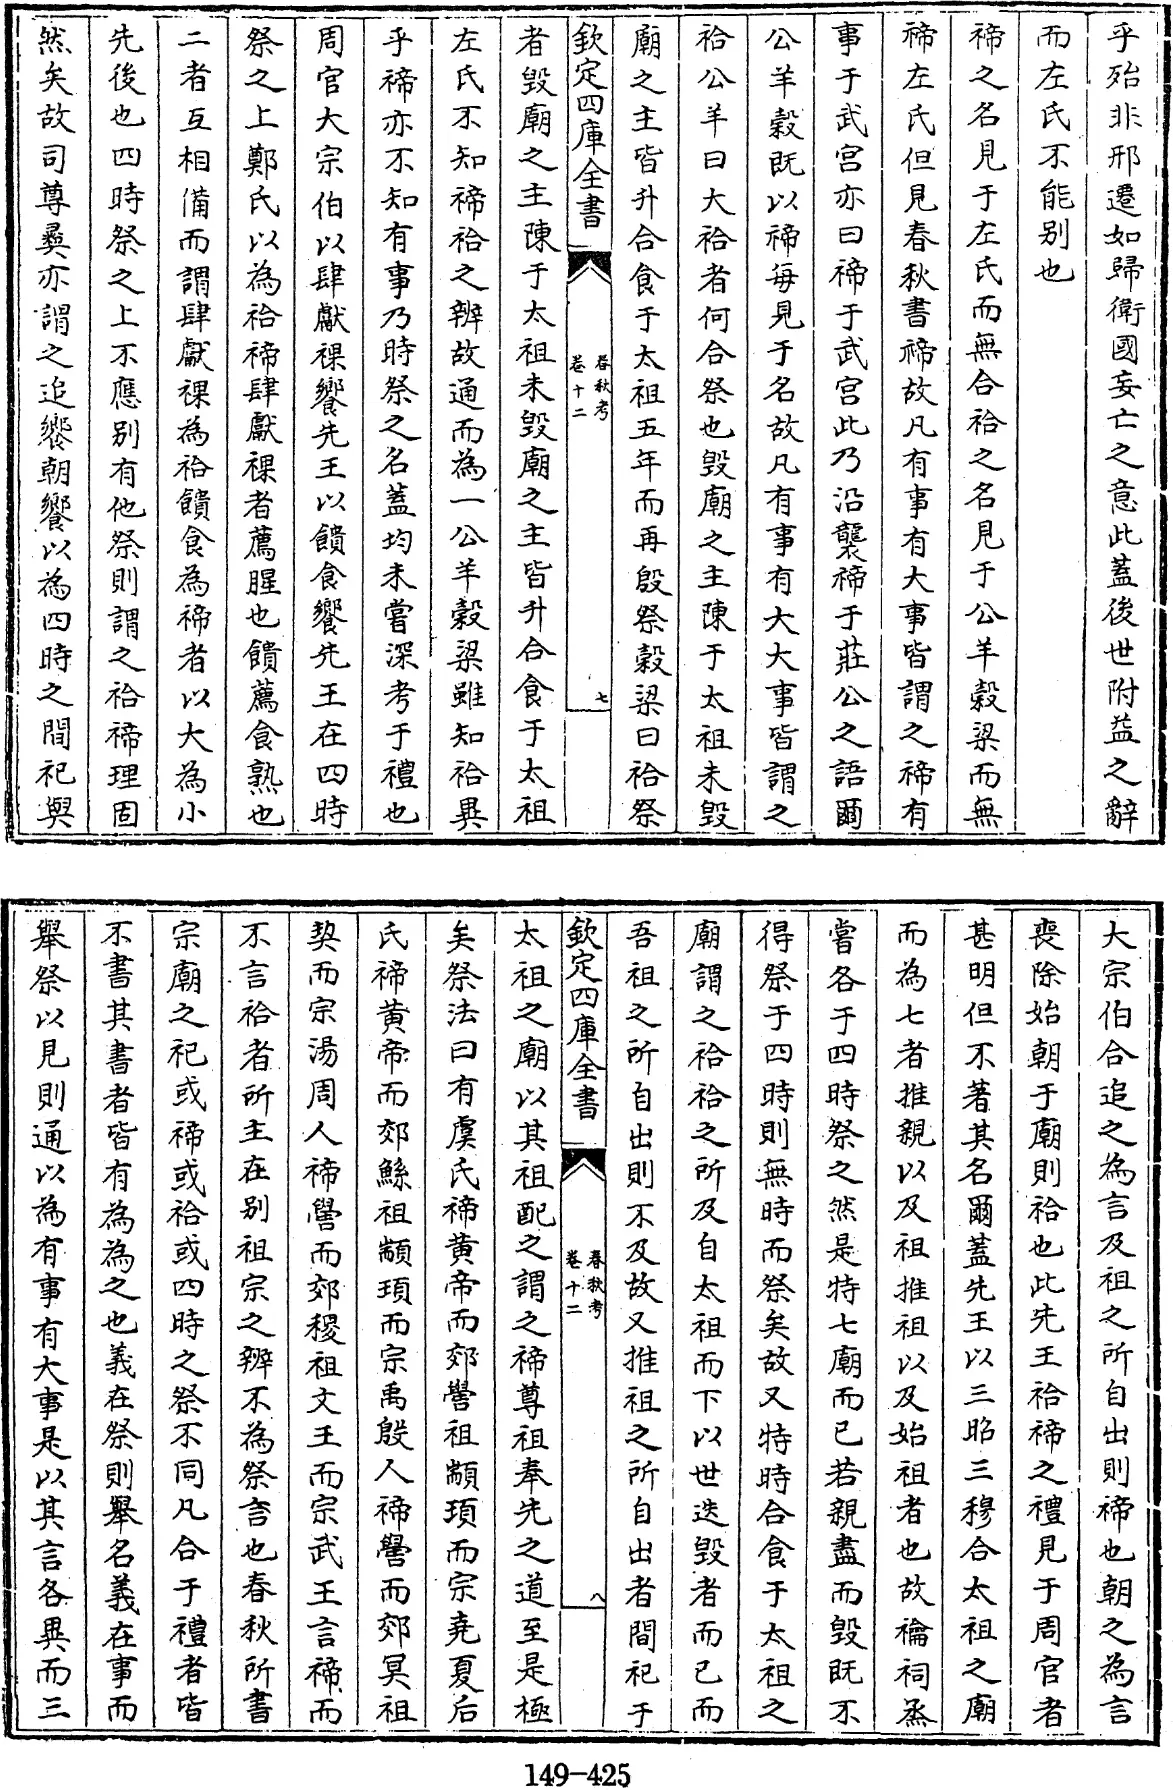 乎殆非邢遷如歸衛國妄亡之意此蓋後世附益之辭
而左氏不能别也
禘之名見于左氏而無合祫之名見于公羊穀梁而無
禘左氏但見春秋書禘故凡有事有大事皆謂之禘有
事于武宫亦曰禘于武宫此乃沿襲禘于莊公之語爾
公羊穀既以禘每見于名故凡有事有大大事皆謂之
祫公羊曰大祫者何合祭也毁廟之主陳于太祖未毁
廟之主皆升合食于太祖五年而再殷祭穀梁曰祫祭
欽定四庫全書
春秋考
卷十二
七
者毁廟之主陳于太祖未毁廟之主皆升合食于太祖
左氏不知禘祫之辨故通而為一公羊穀梁雖知祫異
乎禘亦不知有事乃時祭之名蓋均未嘗深考于禮也
周官大宗伯以肆獻祼饗先王以饋食饗先王在四時
祭之上鄭氏以為祫禘肆獻祼者薦腥也饋薦食熟也
二者互相備而謂肆獻祼為祫饋食為禘者以大為小
先後也四時祭之上不應别有他祭則謂之祫禘理固
然矣故司尊彛亦謂之追饗朝饗以為四時之間祀與
大宗伯合追之為言及祖之所自出則禘也朝之為言
喪除始朝于廟則祫也此先王祫禘之禮見于周官者
甚明但不著其名爾蓋先王以三昭三穆合太祖之廟
而為七者推親以及祖推祖以及始祖者也故禴祠烝
嘗各于四時祭之然是特七廟而已若親盡而毁既不
得祭于四時則無時而祭矣故又特時合食于太祖之
廟謂之祫祫之所及自太祖而下以世迭毁者而已而
吾祖之所自出則不及故又推祖之所自出者間祀于
欽定四庫全書
春秋考
卷十二
八
太祖之廟以其祖配之謂之禘尊祖奉先之道至是極
矣祭法曰有虞氏禘黄帝而郊嚳祖顓頊而宗堯夏后
氏禘黄帝而郊鯀祖顓頊而宗禹殷人禘嚳而郊冥祖
契而宗湯周人禘嚳而郊稷祖文王而宗武王言禘而
不言祫者所主在别祖宗之辨不為祭言也春秋所書
宗廟之祀或禘或祫或四時之祭不同凡合于禮者皆
不書其書者皆有為為之也義在祭則舉名義在事而
舉祭以見則通以為有事有大事是以其言各異而三
149-425